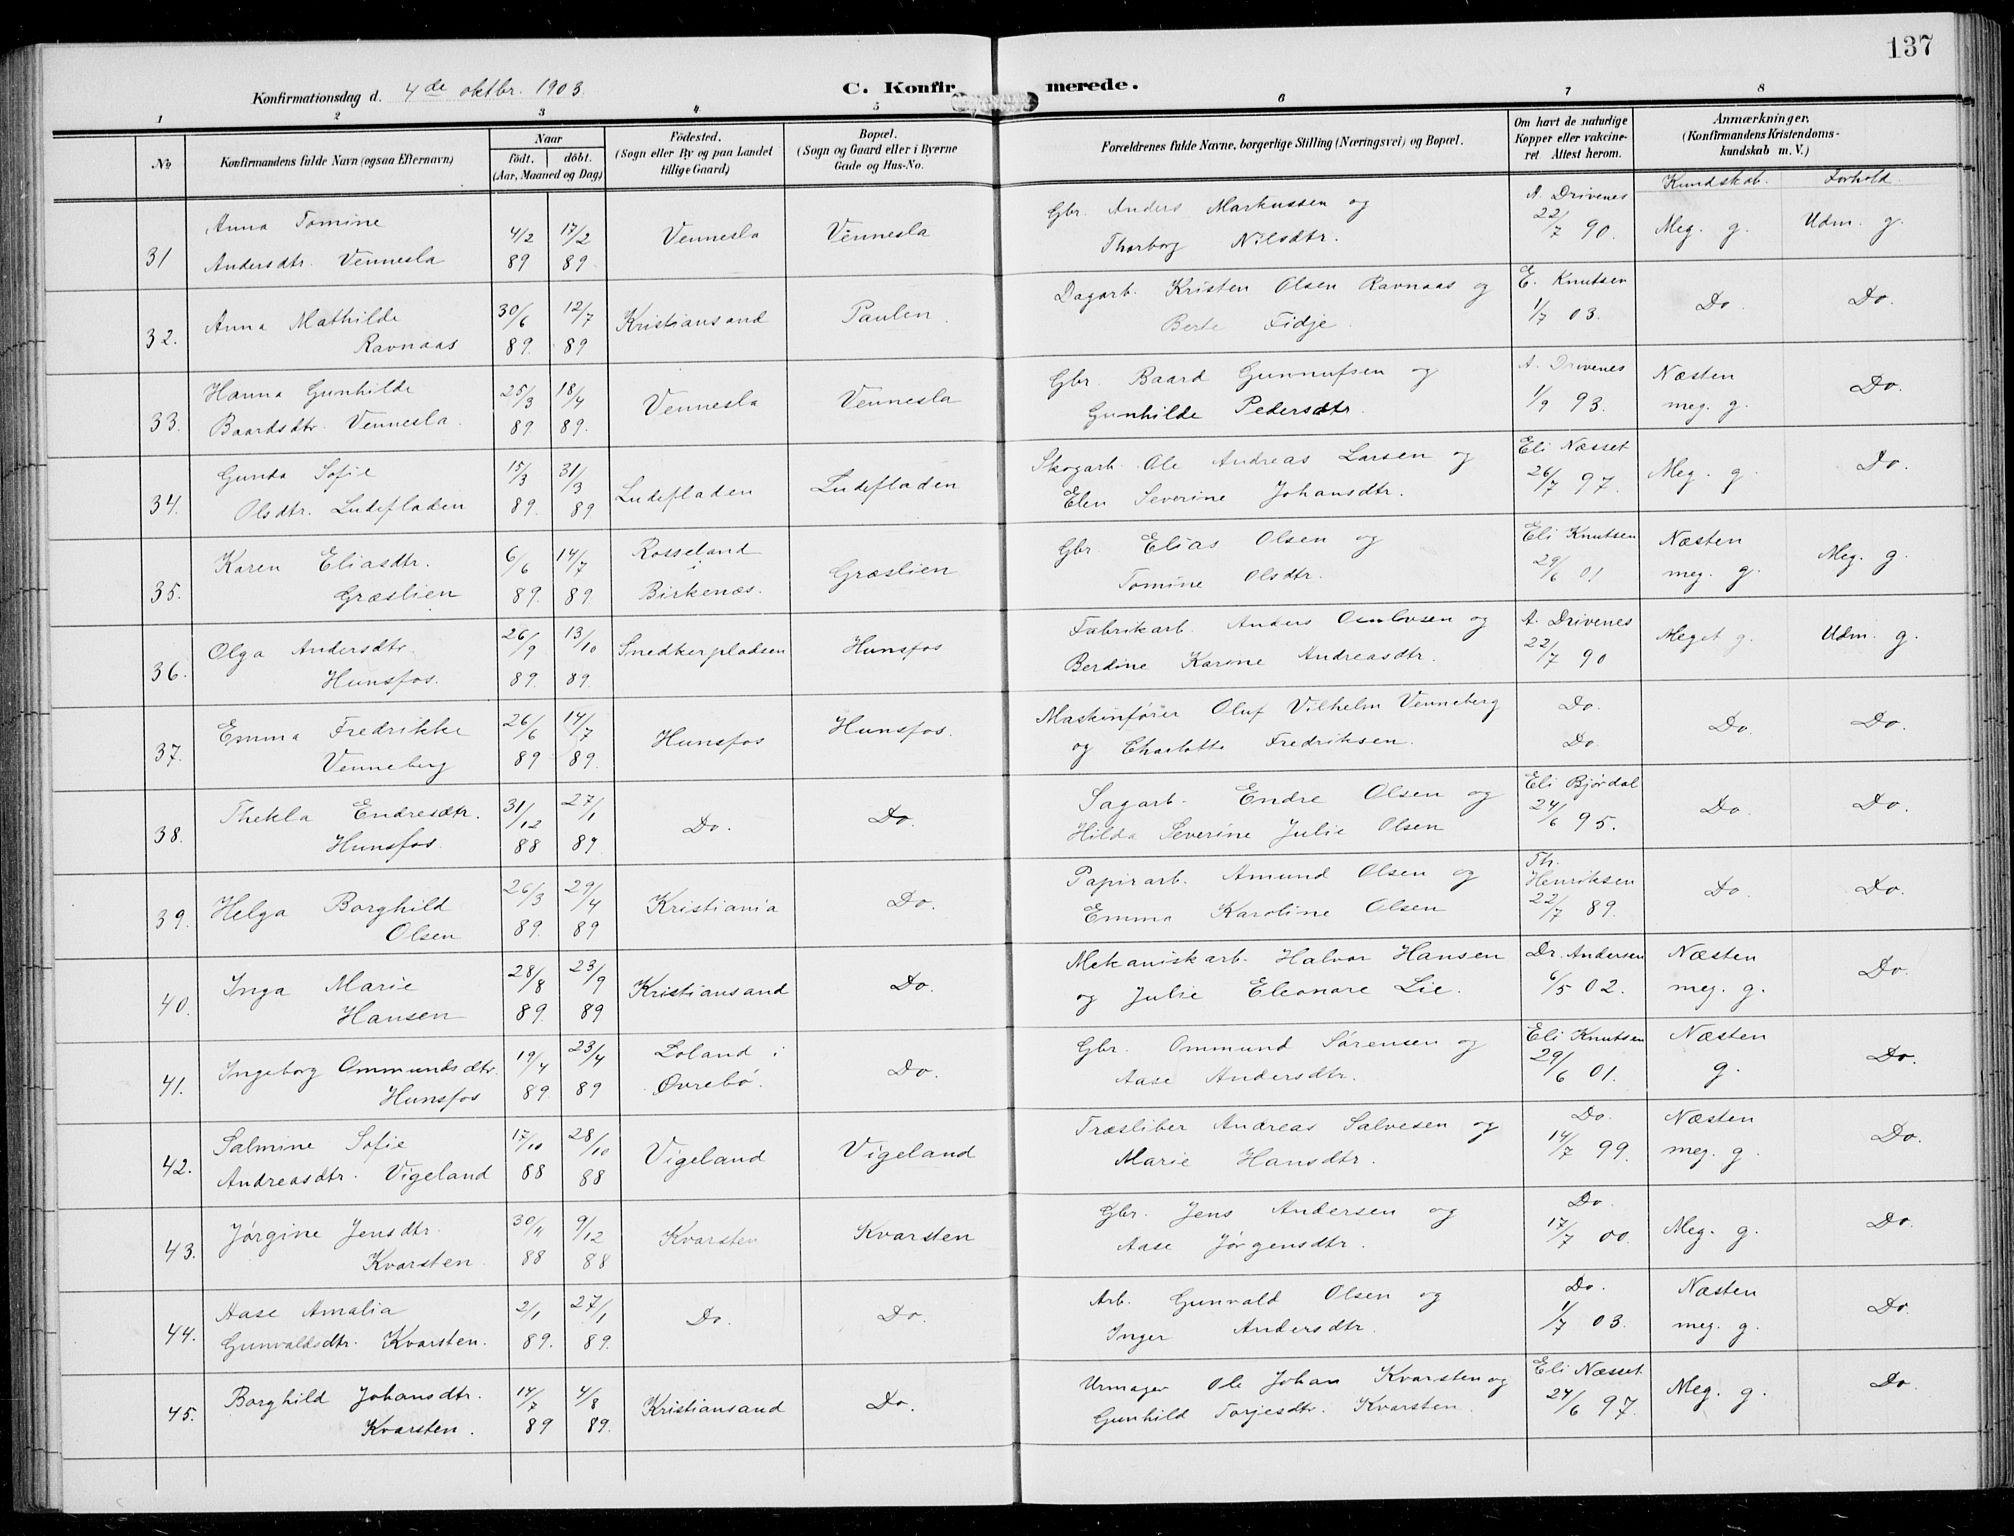 137
Konfirmationsdag d. 4de oktbr. 1903.
C. Konfirmerede.
1 2 3 4 5 6 7 8
No
Konfirmandens fulde Navn (ogsaa Efternavn)
Naar
født. døbt.
(Aar, Maaned og Dag)
Fødested.
(Sogn eller By og paa Landet
tillige Gaard)
Bopæl.
(Sogn og Gaard eller i Byerne
Gade og Hus-No.
Forældrenes fulde Navne, borgerlige Stilling (Næringsvei) og Bopæl.
Om havt de naturlige
Kopper eller vakcine-
ret Attest herom.
Anmærkninger.
(Konfirmandens Kristendoms-
kundskab m. V.)
Kundskab. Forhold.
31 Anna Tomine 4/2 17/2 Vennesla Vennesla Gbr. Anders Markussen og A. Drivenes Meg. g. Udm. g.
Andersdtr. Vennesla 89 89. Thorborg Nilsdtr. 22/7 90.
32. Anna Mathilde 30/6 12/7 Kristiansand Paulen. Dagarb. Kristen Olsen Ravnaas og E. Knutsen Do. Do.
Ravnaas 89. 89 Berte Fidje. 1/7 03.
33. Hanna Gunhilde 25/3 18/4 Vennesla Vennesla Gbr. Baard Gunnufsen og A. Drivenes Næsten Do.
Baardsdtr. Vennesla. 89 89. Gunhilde Pedersdtr. 1/9 93. meg. g.
34. Gunda Sofie 15/3 31/3 Ludefladen Ludefladen Skogarb. Ole Andreas Larsen og Eli Næsset Meg. g. Do.
Olsdtr. Ludefladen 89. 89 Elen Severine Johansdtr. 26/7 97.
35. Karen Eliasdtr. 6/6 14/7 Rosseland i Græslien Gbr. Elias Olsen og Eli Knutsen Næsten Meg. g.
Græslien 89. 89. Birkenæs. Tomine Olsdtr. 29/6 01 meg. g.
36. Olga Andersdtr. 26/9 13/10 Snedkerpladsen Hunsfos Fabrikarb. Anders og A. Drivenes Meget g. Udm. g.
Hunsfos. 89. 89. Berdine Karine Andreasdtr. 22/7 90
37. Emma Fredrikke 26/6 14/7 Hunsfos Hunsfos. Maskinfører Oluf Vilhelm Venneberg Do. Do. Do.
Venneberg 89 89. og Charlotte Fredriksen. Do.
38. Thekla Endresdtr. 31/12 27/1 Do. Do. Sagarb. Endre Olsen og Eli Bjørdal Do. Do.
Hunsfos. 88 89 Hilda Severine Julie Olsen 24/6 95.
39. Helga Borghild 26/3 29/4 Kristiania Do. Papirarb. Amund Olsen og Th. Henriksen Do. Do.
Olsen 89. 89 Emma Karoline Olsen 22/7 89.
40. Inga Marie 28/8 23/9 Kristiansand Do. Mekaniskarb. Halvor Hansen Dr. Andersen Næsten Do.
Hansen 89. 89 og Julie Eleonore Lie. 6/5 02. meg. g.
41. Ingeborg Ommundsdtr. 19/4 23/4 Loland i Do. Gbr. Ommund Sørensen og Eli Knutsen Næsten Do.
Hunsfos 89. 89 Øvrebø. Aase Andersdtr. 29/6 01. g.
42. Salmine Sofie 17/10 28/10 Vigeland Vigeland Træsliber Andreas Salvesen og Do. Næsten Do.
Andreasdtr. Vigeland 88 88 Marie Hansdtr. 14/7 99. meg. g.
43. Jørgine Jensdtr. 30/11 9/12 Kvarsten Kvarsten Gbr. Jens Andersen og Do. Meg. g. Do.
Kvarsten. 88 88 Aase Jørgensdtr. 17/7 00.
44. Aase Amalia 2/1 27/1 Do. Do. Arb. Gunvald Olsen og Do. Næsten Do.
Gunvaldsdtr. Kvarsten. 89. 89. Inger Andersdtr. 1/7 03. meg. g.
45. Borghild Johansdtr. 14/7 4/8 Kristiansand Do. Urmager Ole Johan Kvarsten og Eli Næsset Meg. g. Do.
Kvarsten. 89 89. Gunhild Torjesdtr. Kvarsten. 24/6 97.